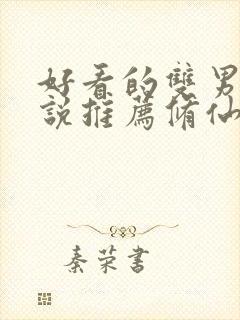 好看的雙男
說推薦脩仙
秦荣書